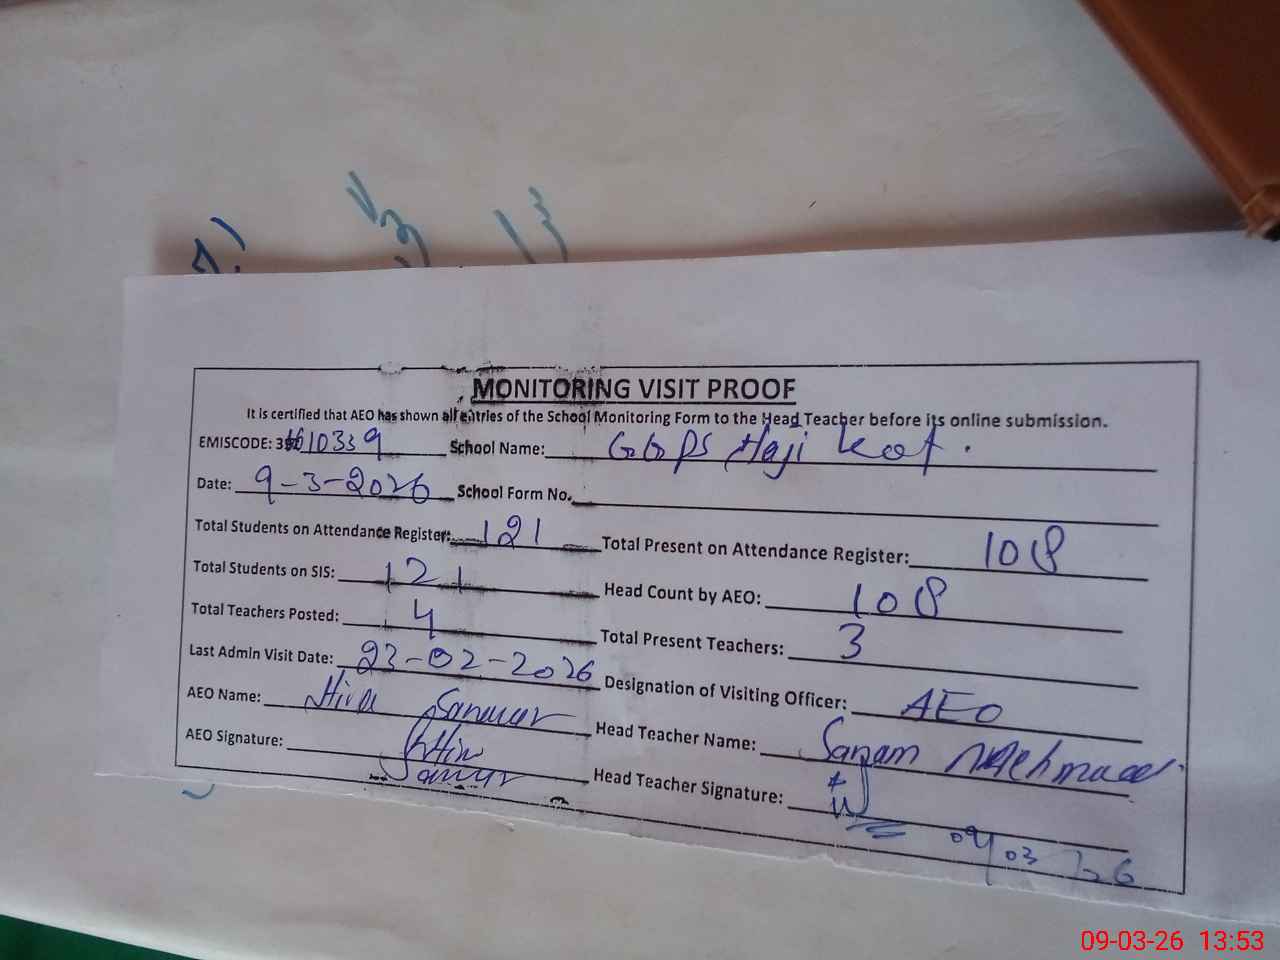 MONITORING VISIT PROOF
It is certified that AEO has shown all entries of the School Monitoring Form to the Head Teacher before its online submission.
EMISCODE: 10339 School Name: GGPS Haji Kot.
Date: 9-3-2026 School Form No.
Total Students on Attendance Register: 121 Total Present on Attendance Register: 108
Total Students on SIS: 121 Head Count by AEO: 108
Total Teachers Posted: 4 Total Present Teachers: 3
Last Admin Visit Date: 23-02-2026 Designation of Visiting Officer: AEO
AEO Name: Hira Sanawar Head Teacher Name: Sanam
AEO Signature: Head Teacher Signature:
09/03/26
09-03-26 13:53